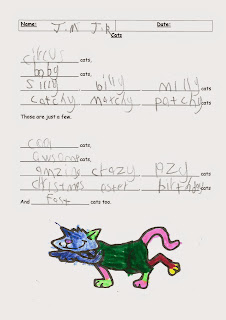 Name: Jim JR Date:
Cats
circus cats,
baby cats,
silly billy milly cats
catchy matchy patchy cats
Those are just a few.
cool cats,
awsome cats,
amzing crazy cats
christmas easter birthday cats
And fast cats too.